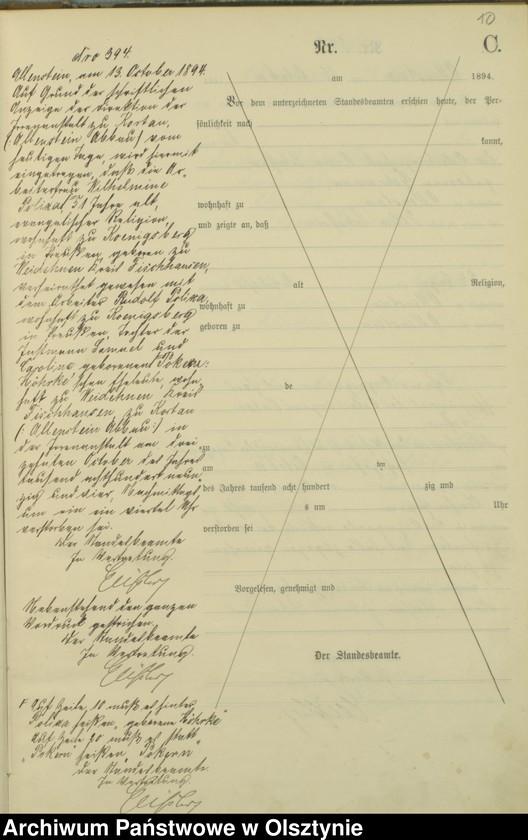 10
Nr.
C.
Nro 394.
Allenstein, am 13. October 1894.
Auf Grund der schriftlichen
Anzeige der Direktion der
Irrenanstalt zu Kortau,
(: Allenstein Abbau :) vom
heutigen Tage, wird hiermit
eingetragen, daß die Ar-
beiterfrau Wilhelmine
Polixa, 31 Jahre alt,
evangelischer Religion,
wohnhaft zu Koenigsberg
in Preußen, geboren zu
Weidehnen Kreis Fischhausen,
verheirathet gewesen mit
dem Arbeiter Rudolf Polixa,
wohnhaft zu Koenigsberg
in Preußen, Tochter der
Instmann Samuel und
Caroline geborenen
Köhrke'schen Eheleute, wohn-
haft zu Weidehnen Kreis
Fischhausen, zu Kortau
(: Allenstein Abbau :) in
der Irrenanstalt am drei-
zehnten October des Jahres
tausend achthundert neun-
zig und vier, Nachmittags
um ein ein viertel Uhr
verstorben sei.
Der Standesbeamte
In Vertretung.
Nebenstehend den ganzen
Vordruck gestrichen.
Der Standesbeamte
In Vertretung.
Auf Zeile 10 muß es hinter
Polixa heißen „geborene Köhrke"
Auf Zeile 20 muß es statt
heißen
Der Standesbeamte.
In Vertretung.
am 1894.
Vor dem unterzeichneten Standesbeamten erschien heute, der Per-
sönlichkeit nach
kannt,
wohnhaft zu
und zeigte an, daß
alt Religion,
wohnhaft zu
geboren zu
de
zu
am ten
des Jahres tausend acht hundert zig und
s um Uhr
verstorben sei
Vorgelesen, genehmigt und
Der Standesbeamte.
Archiwum Państwowe w Olsztynie